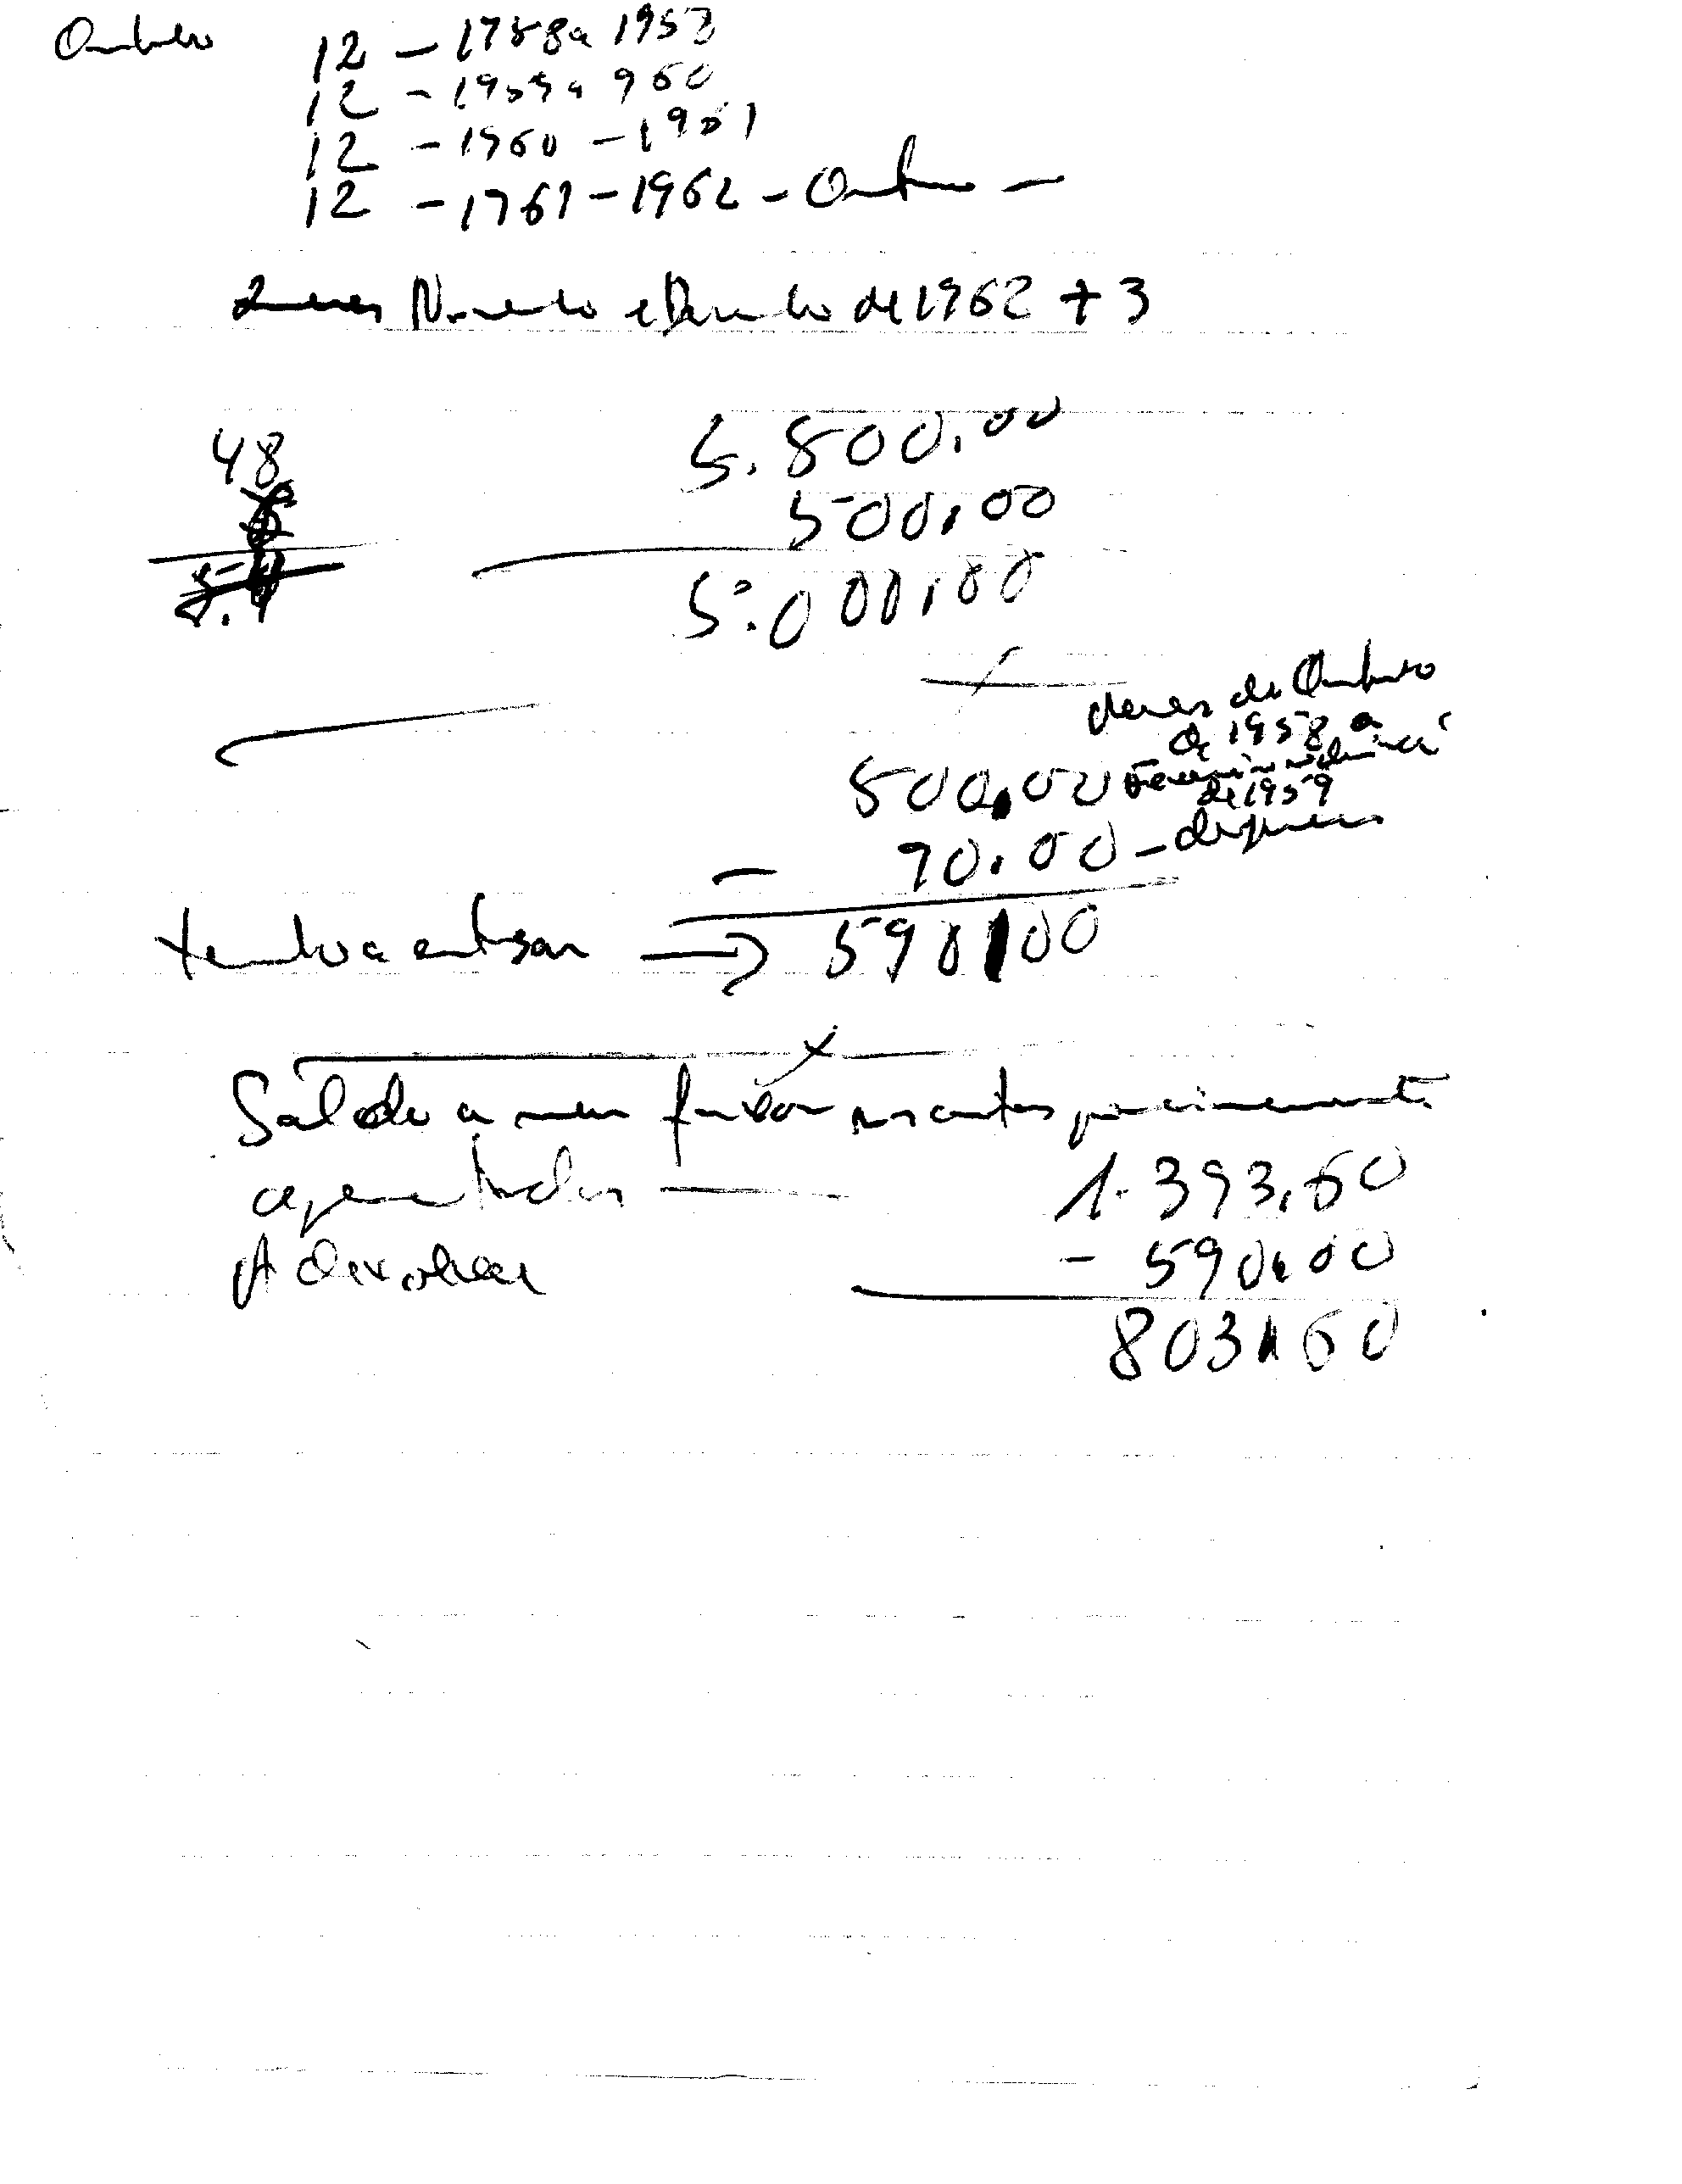 Outubro 12 - 1958 a 1959
12 - 1959 a 960
12 - 1960 - 1961
12 - 1961 - 1962 - Outubro -
Novembro e Dezembro de 1962 + 3
48 5.800,00
500,00
5.000,00
de Outubro
de 1958 a
500,00 Fevereiro
de 1959
- 90,00 - despesas
tenho a entregar → 590,00
Saldo a meu favor nas contas
apresentadas 1.393,60
A devolver - 590,00
803,60